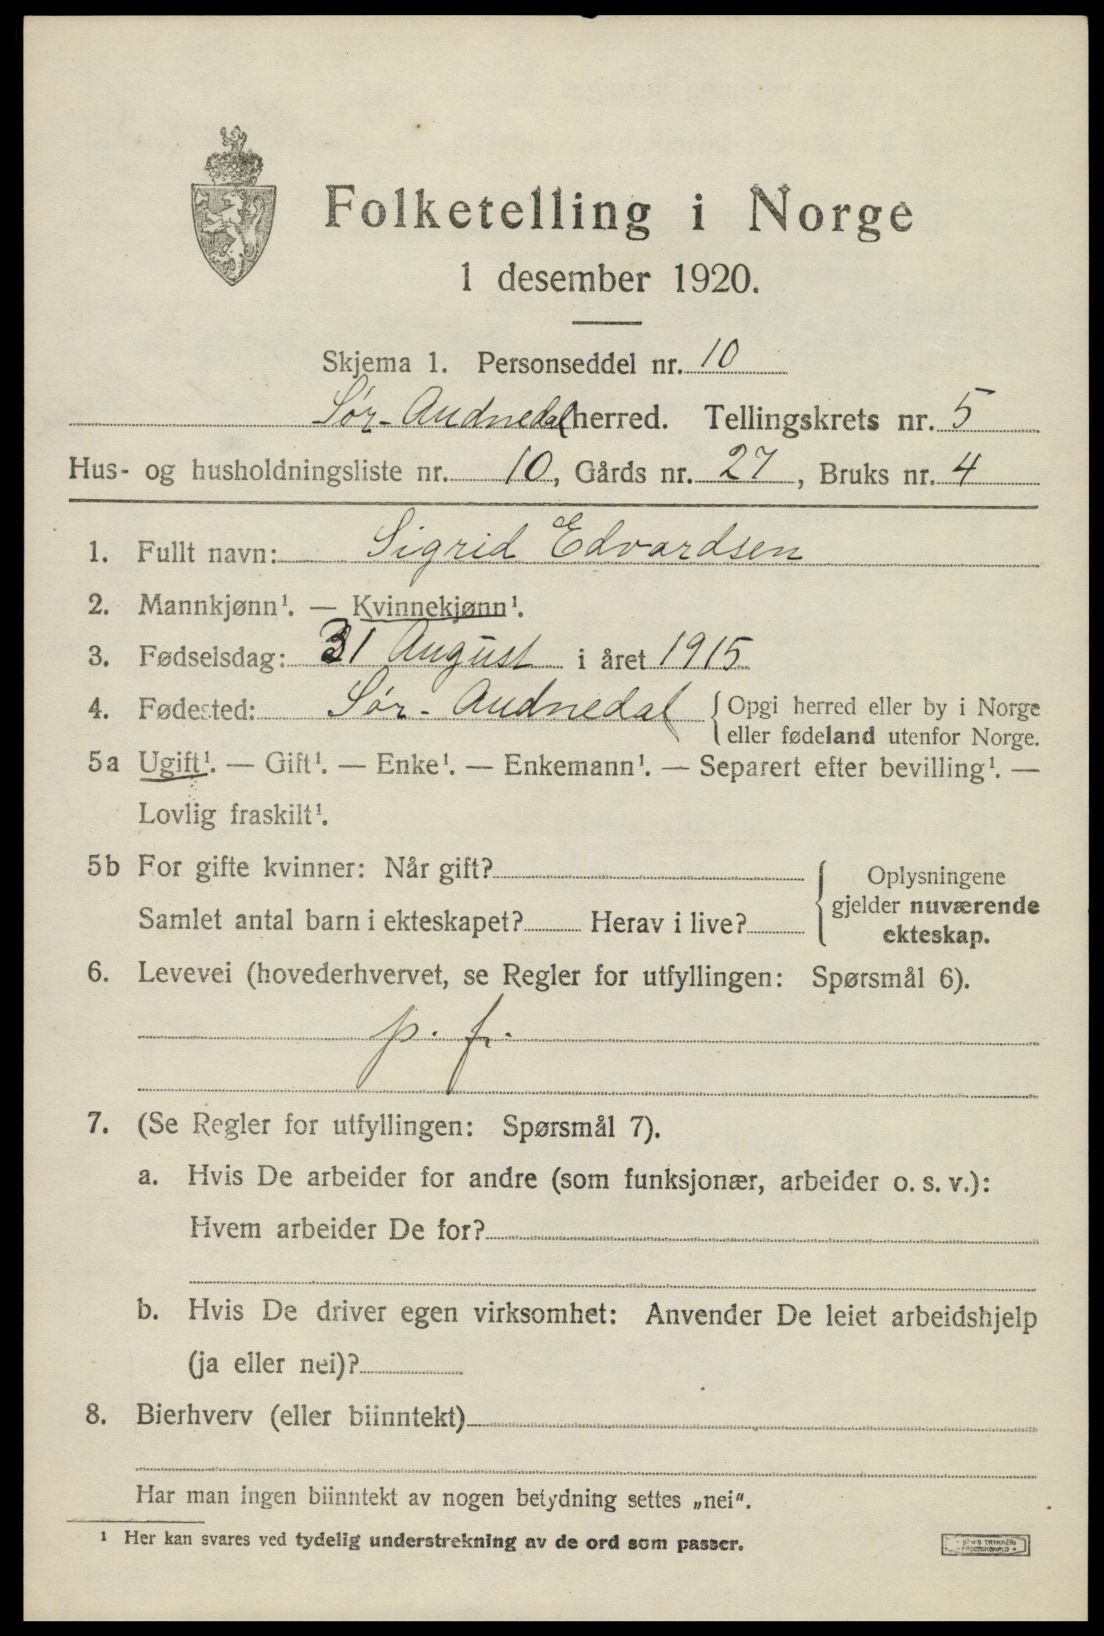 Folketelling i Norge
1 desember 1920.
Skjema 1. Personseddel nr. 10
Sør-Audnedal herred. Tellingskrets nr. 5
Hus- og husholdningsliste nr. 10, Gårds nr. 27, Bruks nr. 4
1. Fullt navn: Sigrid Edvardsen
2. Mannkjønn¹. — Kvinnekjønn¹.
3. Fødselsdag: 31 August i året 1915
4. Fødested: Sør-Audnedal { Opgi herred eller by i Norge
eller fødeland utenfor Norge.
5a Ugift¹. — Gift¹. — Enke¹. — Enkemann¹. — Separert efter bevilling¹. —
Lovlig fraskilt¹.
5b For gifte kvinner: Når gift?
Samlet antal barn i ekteskapet? Herav i live?
Oplysningene
gjelder nuværende
ekteskap.
6. Levevei (hovederhvervet, se Regler for utfyllingen: Spørsmål 6).
p. f.
7. (Se Regler for utfyllingen: Spørsmål 7).
a. Hvis De arbeider for andre (som funksjonær, arbeider o. s. v.):
Hvem arbeider De for?
b. Hvis De driver egen virksomhet: Anvender De leiet arbeidshjelp
(ja eller nei)?
8. Bierhverv (eller biinntekt)
Har man ingen biinntekt av nogen betydning settes „nei“.
¹ Her kan svares ved tydelig understrekning av de ord som passer.